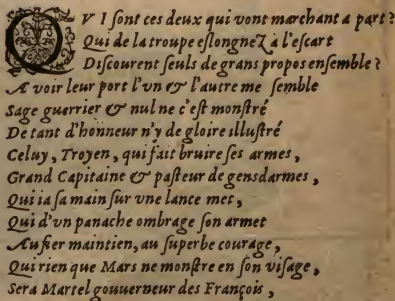 QVI ſont ces deux qui vont marchant a part?
Qui de la troupe eſlongneZ à l'eſcart
Diſcourent ſeuls de grans propos enſemble?
A voir leur port l'vn & l'autre me ſemble
Sage guerrier & nul ne c'eſt monſtré
De tant d'honneur n'y de gloire illuſtré
Celuy, Troyen, qui fait bruire ſes armes,
Grand Capitaine & paſteur de gensdarmes,
Qui ia ſa main ſur vne lance met,
Qui d'vn panache ombrage ſon armet
Au fier maintien, au ſuperbe courage,
Qui rien que Mars ne monſtre en ſon viſage,
Sera Martel gouuerneur des François,